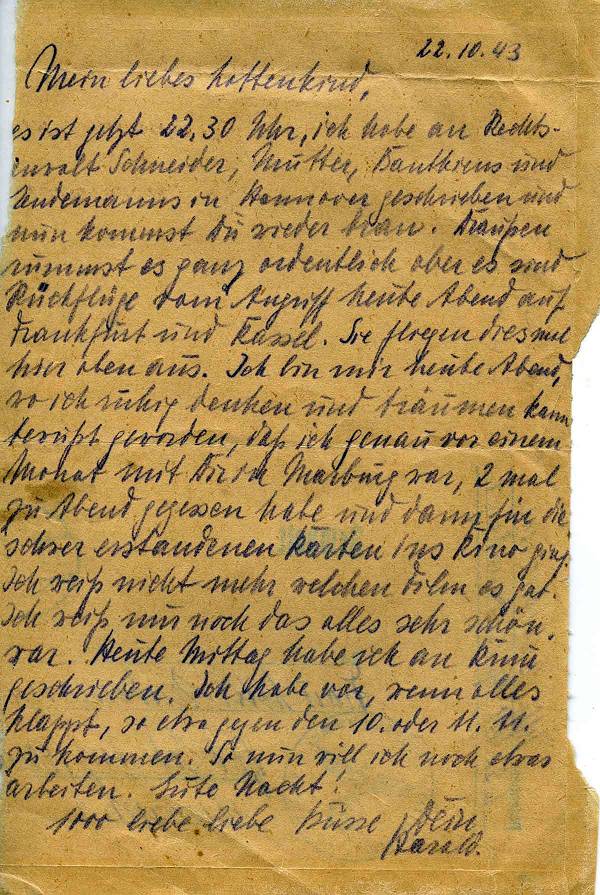 22.10.43
Mein liebes Hottenkind,
es ist jetzt 22.30 Uhr, ich habe an Rechts-
anwalt Schneider, Mutter, und
in Hannover geschrieben und
nun kommst Du wieder dran. Draußen
rummst es ganz ordentlich aber es sind
Rückflüge vom Angriff heute Abend auf
Frankfurt und Kassel. Sie fliegen diesmal
hier oben aus. Ich bin mir heute Abend,
wo ich ruhig denken und träumen kann
bewußt geworden, daß ich genau vor einem
Monat mit Dir in Marburg war, 2 mal
zu Abend gegessen habe und dann in die
schwer erstandenen Karten ins Kino ging.
Ich weiß nicht mehr welchen Film es gab.
Ich weiß nur noch das alles sehr schön
war. Heute Mittag habe ich an
geschrieben. Ich habe vor, wenn alles
klappt, so etwa gegen den 10. oder 11.11.
zu kommen. So nun will ich noch etwas
arbeiten. Gute Nacht!
1000 liebe liebe Küsse Dein
Harald.